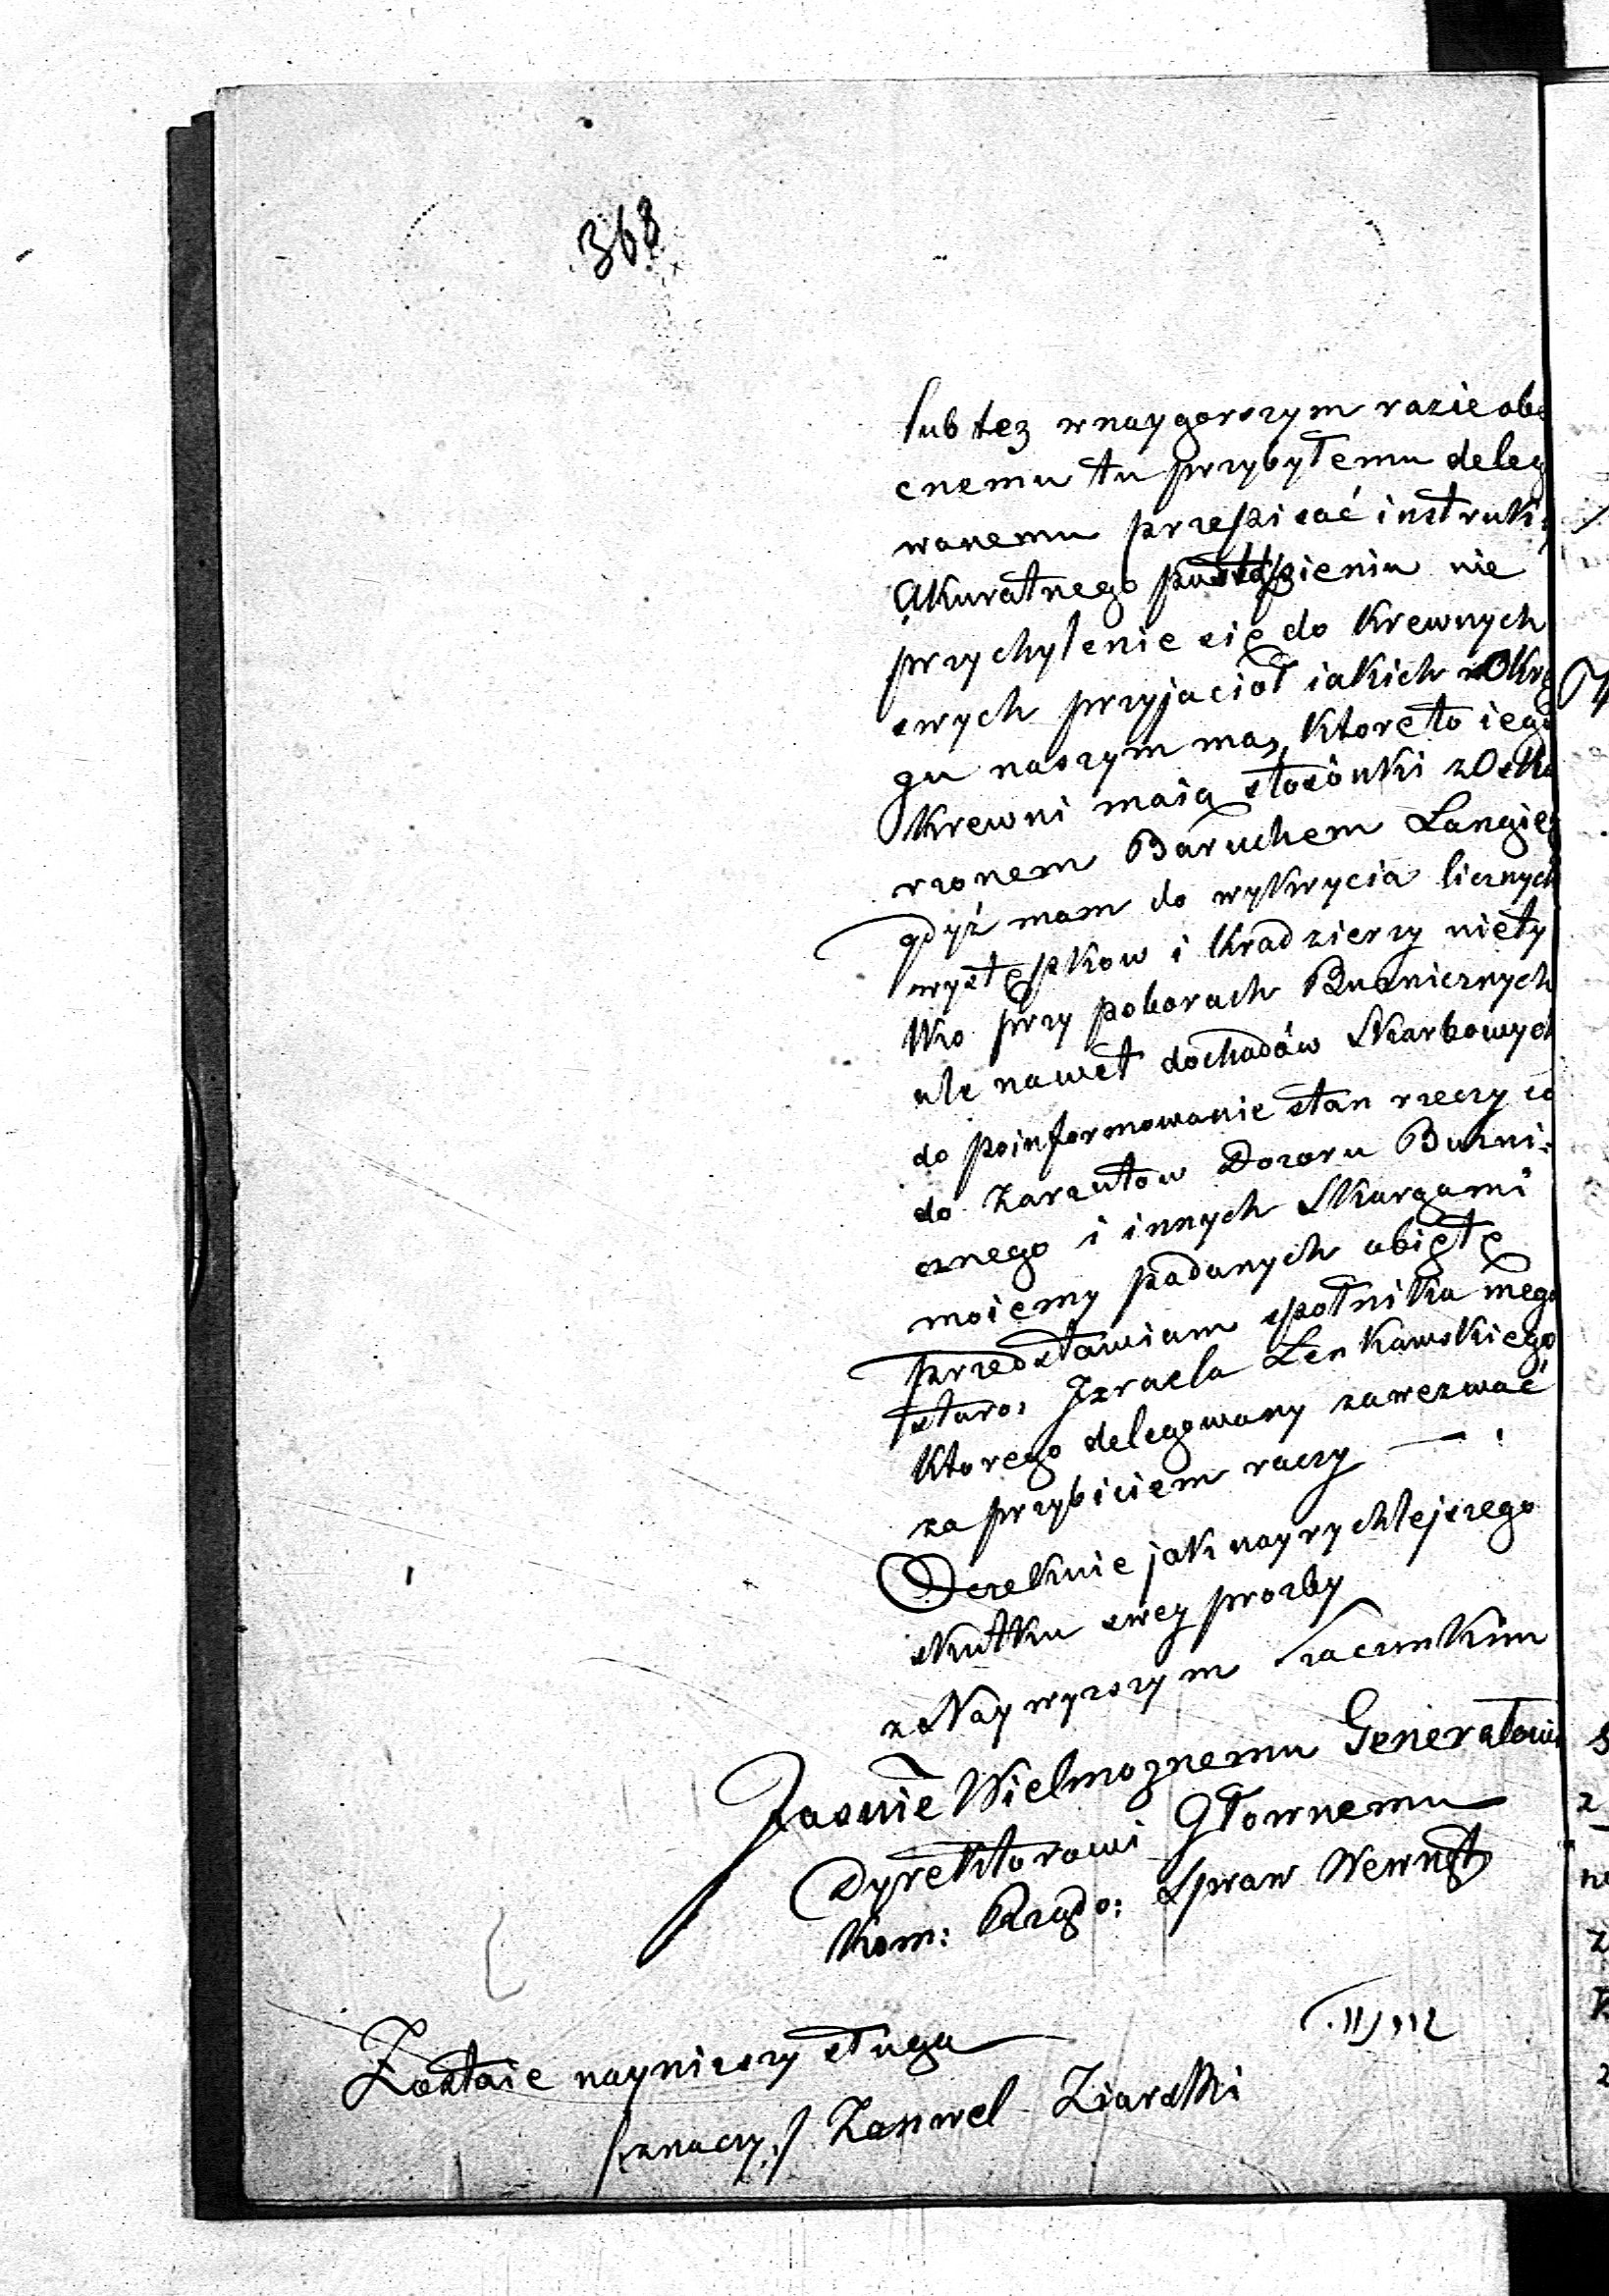 368
lub tez w naygorszym razie obe
cnemu tu przybyłemu deleg
wanemu przepisać instrukj
Akuratnego postąpieniu nie
przychylenie się do Krewnych
swych przyjacioł iakich w Okrę
gu naszym ma, Ktore to iego
Krewni maią stosónki z Oska
rzonem Baruchem Langie
gdyż mam do wykrycia licznych
występkow i Kradzierzy niety
lko przy poborach Buznicznych
ale nawet dochodów Skarbowych
do poinformowanie stan rzeczy co
do Zarzutow Dozoru Buzni:
cznego i innych Skargami
moiemy podanych obiętę
przedstawiam społnika mego
staro: Izraela Lenkawskiego
Ktorego delegowany zawezwać
za przybiciem raczy —
Oczeknie jak nayrychlejszego
skutku swey prozby
z Naywyzszym Szacunkim
Jasnie Wielmoznemu Generałowi
Dyrektorowi Głownemu
Kom: Rządo: Spraw Wewnęt
Zostaie naynizszy sługa
/:znaczy:/ Zanwel Ziarski